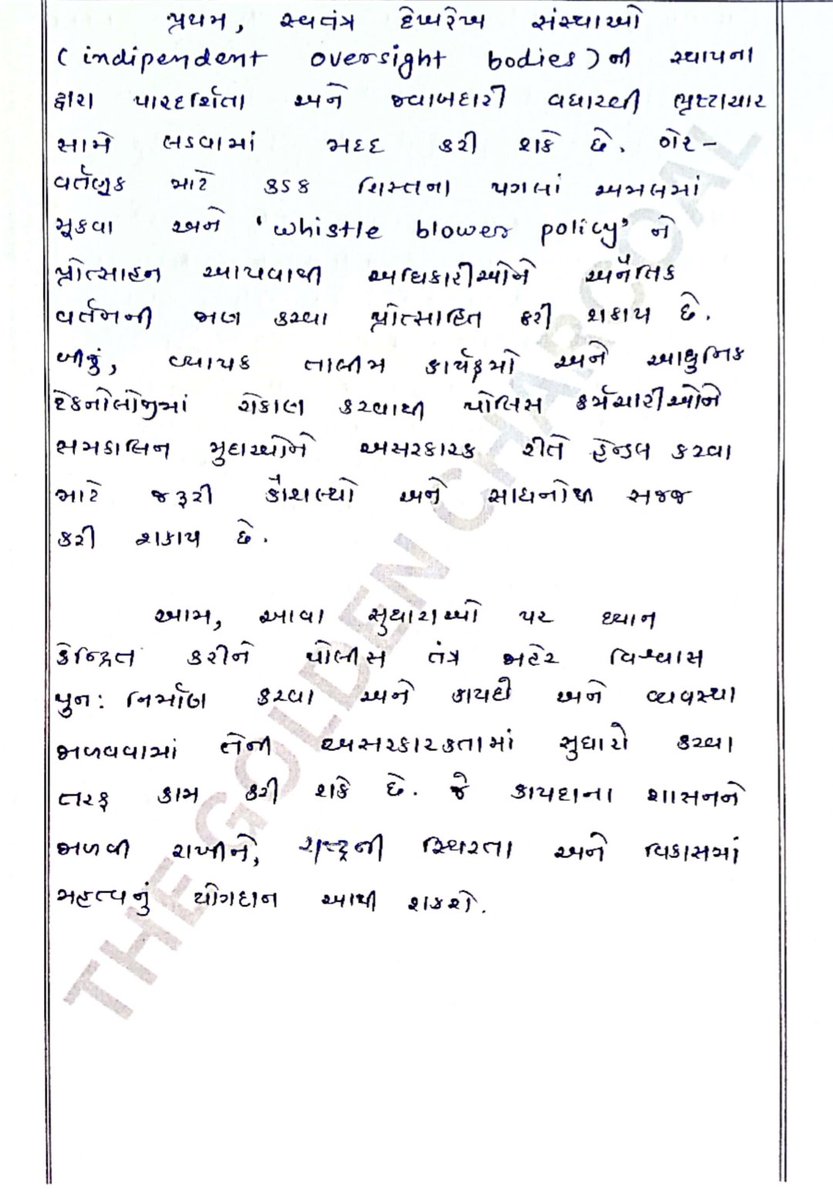 પ્રથમ, સ્વતંત્ર દેખરેખ સંસ્થાઓ
(indipendent oversight bodies)ની સ્થાપના
દ્વારા પારદર્શિતા અને જવાબદારી વધારવી ભ્રષ્ટાચાર
સામે લડવામાં મદદ કરી શકે છે. ગેર-
વર્તણુક માટે કડક શિસ્તના પગલાં અમલમાં
મૂકવા અને 'whistle blower policy' ને
પ્રોત્સાહન આપવાથી અધિકારીઓને અનૈતિક
વર્તનની જાણ કરવા પ્રોત્સાહિત કરી શકાય છે.
બીજું, વ્યાપક તાલીમ કાર્યક્રમો અને આધુનિક
ટેકનોલોજીમાં રોકાણ કરવાથી પોલિસ કર્મચારીઓને
સમકાલિન મુદાઓને અસરકારક રીતે હેન્ડલ કરવા
માટે જરૂરી કૌશલ્યો અને સાધનોથી સજ્જ
કરી શકાય છે.
આમ, આવા સુધારાઓ પર ધ્યાન
કેન્દ્રિત કરીને પોલીસ તંત્ર જાહેર વિશ્વાસ
પુન: નિર્માણ કરવા અને કાયદો અને વ્યવસ્થા
જાળવવામાં તેની અસરકારકતામાં સુધારો કરવા
તરફ કામ કરી શકે છે. જે કાયદાના શાસનને
જાળવી રાખીને, રાષ્ટ્રની સ્થિરતા અને વિકાસમાં
મહત્વનું યોગદાન આપી શકશે.
THE GOLDEN CHARCOAL